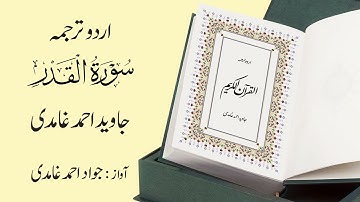 اردو ترجمہ
سُوْرَةُ الْقَدْر
جاوید احمد غامدی
آواز : جواد احمد غامدی
اردو ترجمہ
القرآن الکریم
جاوید احمد غامدی